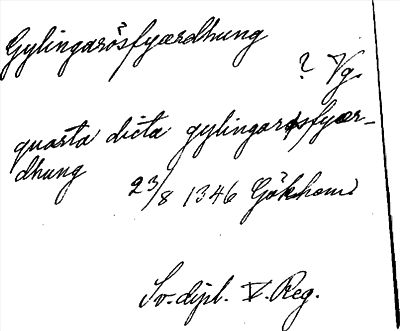 Gylingarösfyærdhung
? Vg.
quarta dicta gylingarøsfyær-
dhung 23/8 1346 Gökhem
Sv. dipl. V. Reg.